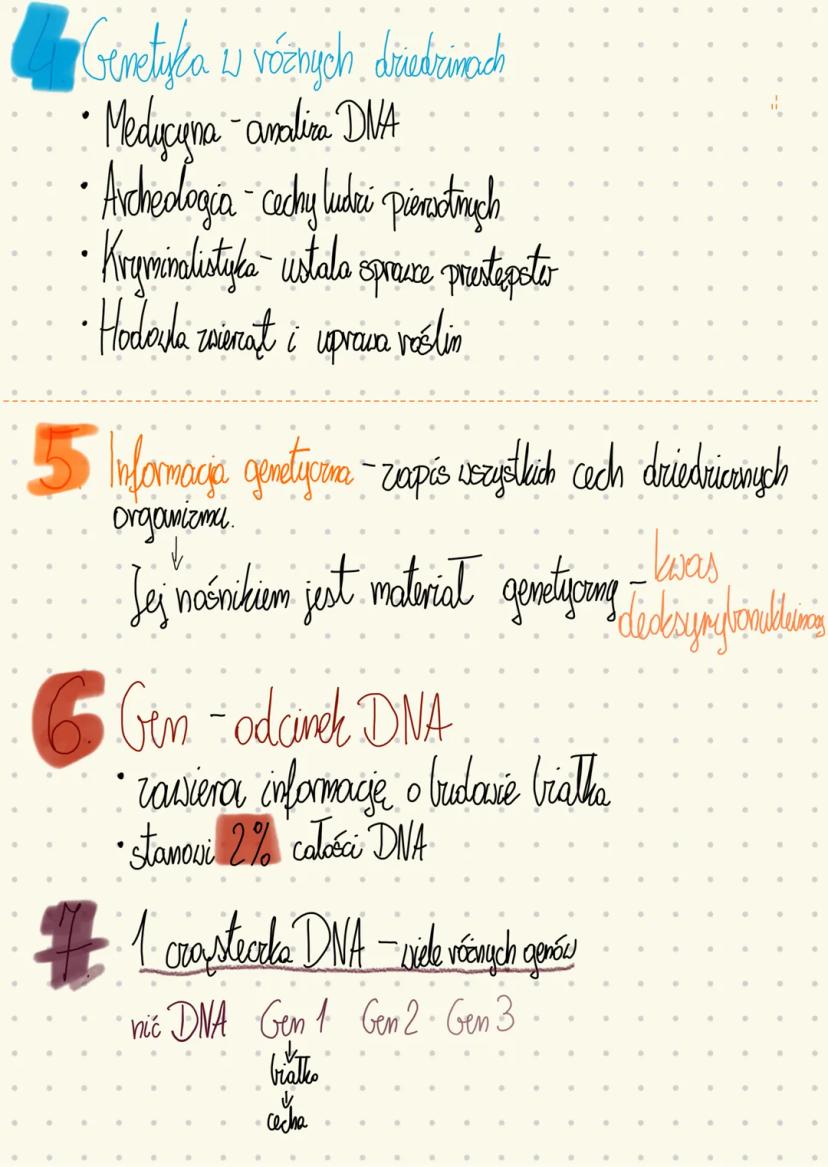 4 Genetyka w różnych dziedzinach
• Medycyna - analiza DNA
• Archeologia - cechy ludzi pierwotnych
• Kryminalistyka - ustala sprawce przestępstw
• Hodowla zwierząt i uprawa roślin
5 Informacja genetyczna - zapis wszystkich cech dziedzicznych
organizmu.
↓
Jej nośnikiem jest materiał genetyczny - kwas
deoksyrybonukleinowy
6. Gen - odcinek DNA
• zawiera informację o budowie białka
• stanowi 2% całości DNA
7. 1 cząsteczka DNA - wiele różnych genów
nić DNA Gen 1 Gen 2 Gen 3
↓
białko
↓
cecha